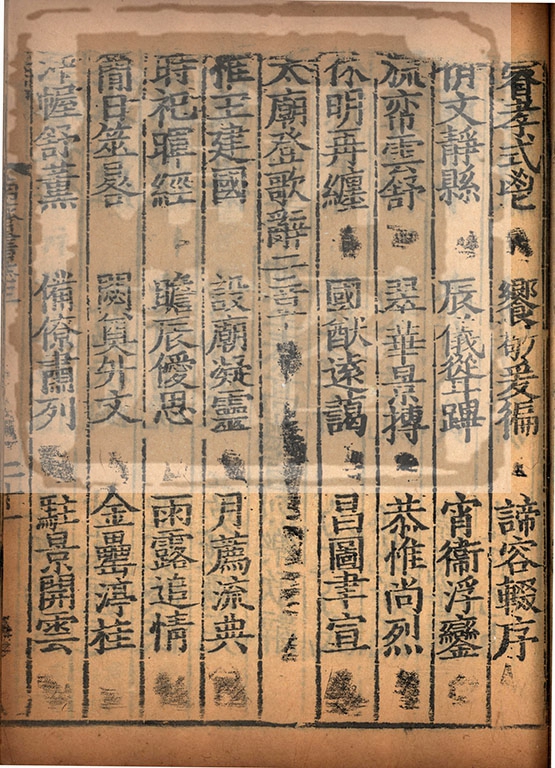 睿孝式鬯　饗敬爰徧　諦容輟序
佾文靜縣　辰儀聳蹕　宵衞浮鑾
旒帟雲舒　翠華景摶　恭惟尚烈
休明再纏　國猷遠藹　昌圖聿宣
太廟登歌辭二章
惟王建國　設廟凝靈　月薦流典
時祀暉經　瞻辰僾思　雨露追情
簡日筮晷　閟奠升文　金罍渟桂
沖幄舒薰　備僚肅列　駐景開雲